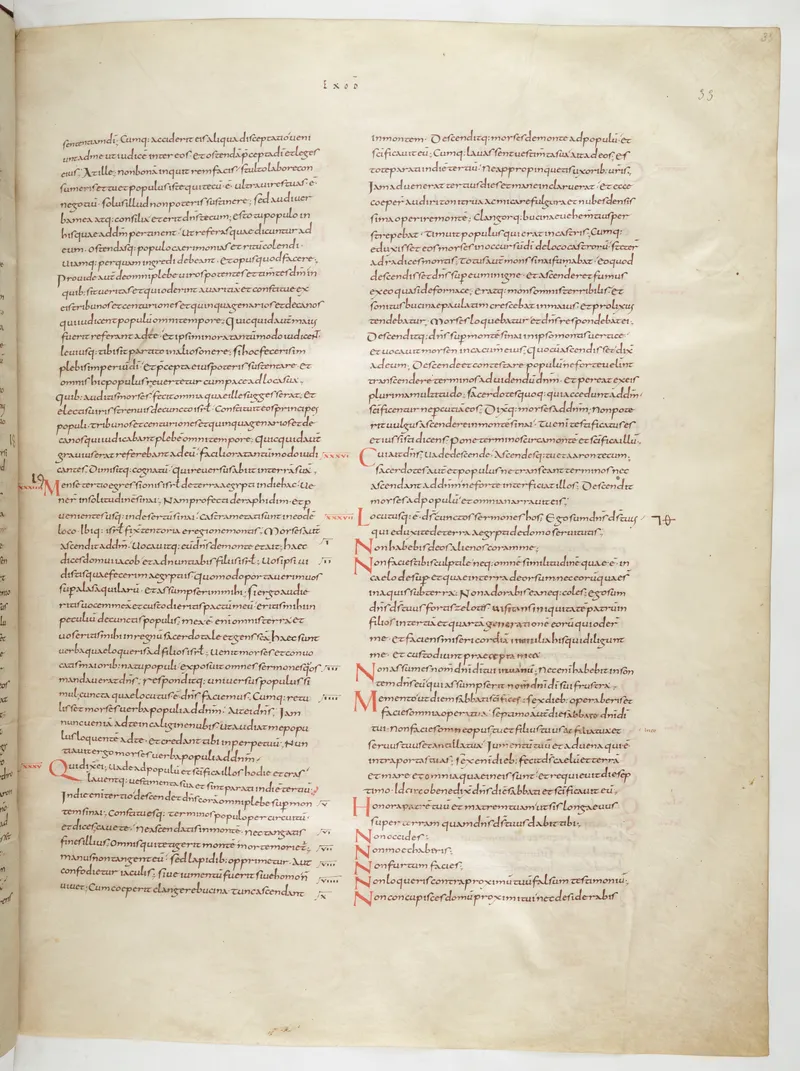 EXOD
33
sententiamdī; Cumq; acciderit eis aliqua disceptatio ueni
unt ad me ut iudice inter eos et ostendā p̄cepta dī et leges
eius; At ille; non bonā inquit rem facis; stulto labore con
sumeris et tu et populus iste qui tecū ē; ultra uires tuas ē
negotiū; solus illud non poteris sustinere; sed audi uer
ba mea atq; consilia et erit dn̄s tecum; esto tu populo in
his quae ad dm̄ pertinent; ut referas quae dicuntur ad
eum; ostendasq; populo caerimonias et ritū colendi;
uiamq; per quam ingredi debeant; et opus quod facere;
Prouide autē de omni plebe uiros potentes et timentes dm̄ in
quib; sit ueritas et qui oderint auaritiā et constitue ex
eis tribunos et centuriones et quinquagenarios et decanos
qui iudicent populū omni tempore; Quicquid autē maius
fuerit referant ad te; et ipsi minora tantū modo iudicent
leuiusq; tibi sit partito in alios onere; si hoc feceris im
plebis imperiū dī; et p̄cepta eius poteris sustentare; et
omnis hic populus reuertetur cum pace ad loca sua;
Quib; auditis moyses fecit omnia quae ille suggesserat; et
electis uiris strenuis de cuncto isrl̄ constituit eos principes
populi; tribunos et centuriones et quinquagenarios et de
canos qui iudicabant plebē omni tempore; Quicquid autē
grauius erat referebant ad eū; faciliora tantū modo iudi
cantes; Dimisitq; cognatū; qui reuersus abiit in terrā suā;
19
Mense tertio egressionis isrl̄ de terra aegypti in die hac ue
nerūt in solitudinē sinai; Nam profecti de raphidim; et p
uenientes usq; in desertū sinai; castra metati sunt in eodē
loco. Ibiq; isrl̄ fixit tentoria e regione montis; Moyses autē
ascendit ad dm̄; Uocauitq; eū dn̄s de monte et ait; haec
dices domui iacob et adnuntiabis filiis isrl̄; Uos ipsi ui
distis quae fecerim aegyptiis; quomodo portauerim uos
sup alas aquilarū; et assumpserim mihi; si ergo audie
ritis uocem meā et custodieritis pactū meū; eritis mihi in
peculiū de cunctis populis; mea ē enī omnis terra; et
uos eritis mihi in regnū sacerdotale et gens scā; haec sunt
uerba quae loqueris ad filios isrl̄; Uenit moyses et conuo
catis maiorib; natu populi exposuit omnes sermones quos
mandauerat dn̄s; responditq; uniuersus populus si
mul; cuncta quae locutus ē dn̄s faciemus; Cumq; retu
lisset moyses uerba populi ad dm̄; Ait ei dn̄s; Iam
nunc ueniā ad te in caligine nubis; ut audiat me popu
lus loquentē ad te; et credant tibi in perpetuū; Nun
tiauit ergo moyses uerba populi ad dm̄;
Qui dixit ei; uade ad populū et scifica illos hodie et cras;
Lauentq; uestimenta sua et sint parati in diē tertiū;
In die enī tertio descendet dn̄s corā omni plebe sup mon
tem sinai; Constituesq; terminos populo per circuitū;
et dices; cauete; Ne ascendatis in monte; nec tangatis
fines illius; Omnis qui tetigerit monte morte morietur;
manus non tanget eū; sed lapidib; opprimetur; Aut
confodietur iaculis; siue iumentū fuerit siue homo non
uiuet; Cum coeperit clangere bucina; tunc ascendant
in montem; Descenditq; moyses de monte ad populū; et
scificauit eū; Cumq; lauissent uestimta sua; ait ad eos; es
tote parati in diē tertiū; Ne appropinquetis uxorib; uris;
Iam aduenerat tertius dies et mane inclaruerat; et ecce
coepert audiri tonitrua; ac micare fulgura et nubes densis
sima operire monte; Clangorq; bucinae uehemtius per
strepebat; timuit populus qui erat in castris; Cumq;
eduxisset eos moyses in occursū dī de loco castrorū; steter
ad radices montis; Totus autē mons sinai fumabat; eo quod
descendisset dn̄s sup eum in igne; et ascenderet fumus
ex eo quasi de fornace; eratq; mons omnis terribilis; et
sonitus bucinae paulatim crescebat in maius; et prolixius
tendebatur; Moyses loquebatur et dn̄s respondebat ei;
Descenditq; dn̄s sup monte sinai in ipso montis uertice
et uocauit moysen in cacumen eius; Quo cū ascendisset dix
ad eum; Descende et contestare populū ne forte uelint
transcendere terminos ad uidendū dn̄m; et pereat ex eis
plurima multitudo; sacerdotes quoq; qui accedunt ad dm̄
scificentur ne pcutiat eos; Dixitq; moyses ad dm̄; Non pote
rit uulgus ascendere in monte sinai; Tu enī testificatus es
et iussisti dicens; pone terminos circa monte et scifica illū;
Cui ait dn̄s; Uade descende; Ascendesq; tu et aaron tecum;
sacerdotes autē et populus ne transeant terminos nec
ascendant ad dm̄ ne forte interficiat illos; Descendit
moyses ad populū et omnia narrauit eis;
Locutusq; ē dn̄s cunctos sermones hos; Ego sum dn̄s ds̄ tuus
qui eduxi te de terra aegypti de domo seruitutis;
Non habebis deos alienos coram me;
Non facies tibi sculptile neq; omnē similitudinē quae ē in
caelo desup et quae in terra deorsum nec eorū quae s̄
in aquis sub terra; Non adorabis ea neq; coles; ego sum
dn̄s ds̄ tuus fortis zelotis; uisitans iniquitatē patrum
filios in tertiā et quartā generatione eorū qui oder
me; et faciens misericordiā in milia his qui diligunt
me; et custodiunt praecepta mea
Non assumes nom dn̄i dī tui in uanū; Nec enī habebit inson
tem dn̄s eū qui assumpserit nom dn̄i dī sui frustra;
Memento ut diem sabbati scifices; sex dieb; operaberis et
facies omnia opera tua; septimo autē die sabbatū dn̄i dī
tui; non facies omne opus tu et filius tuus et filia tua et
seruus tuus et ancilla tua; Iumentū tuū et aduena qui ē
intra portas tuas; sex enī dieb; fecit ds̄ caelū et terrā
et mare et omnia quae in eis sunt; et requieuit die sep
timo; Idcirco benedixit dn̄s diē sabbati et scificauit eū;
Honora patrē tuū et matrem tuam ut sis longaeuus
super terram quam dn̄s ds̄ tuus dabit tibi;
Non occides;
Non moechaberis;
Non furtum facies;
Non loqueris contra proximū tuū falsum testimoniū;
Non concupisces domū proximi tui nec desiderabis